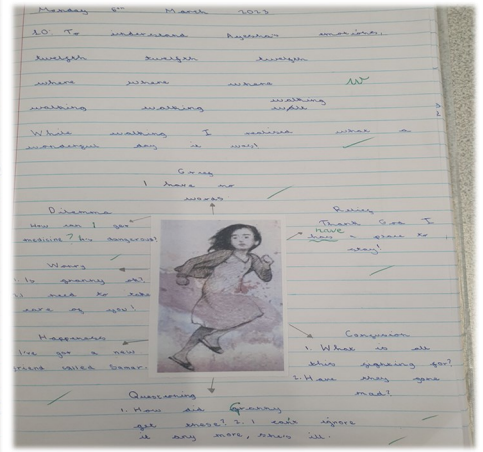 Monday 6th March 2023
LO: To understand Ayesha's emotions.
twelfth twelfth twelfth
where where where w
walking walking walking
While walking I realised what a
wonderful day it was!
Grief
I have no
words
Dilemma
How can I get
medicine? It's dangerous!
Relief
Thank God I
have
have a place to
stay!
Worry
Is granny ok?
I need to take
care of you!
Happiness
I've got a new
friend called Samar.
Confusion
1. What is all
this fighting for?
2. Have they gone
mad?
Questioning
1. How did Granny
get these? 2. I can't ignore
it any more, she's ill.